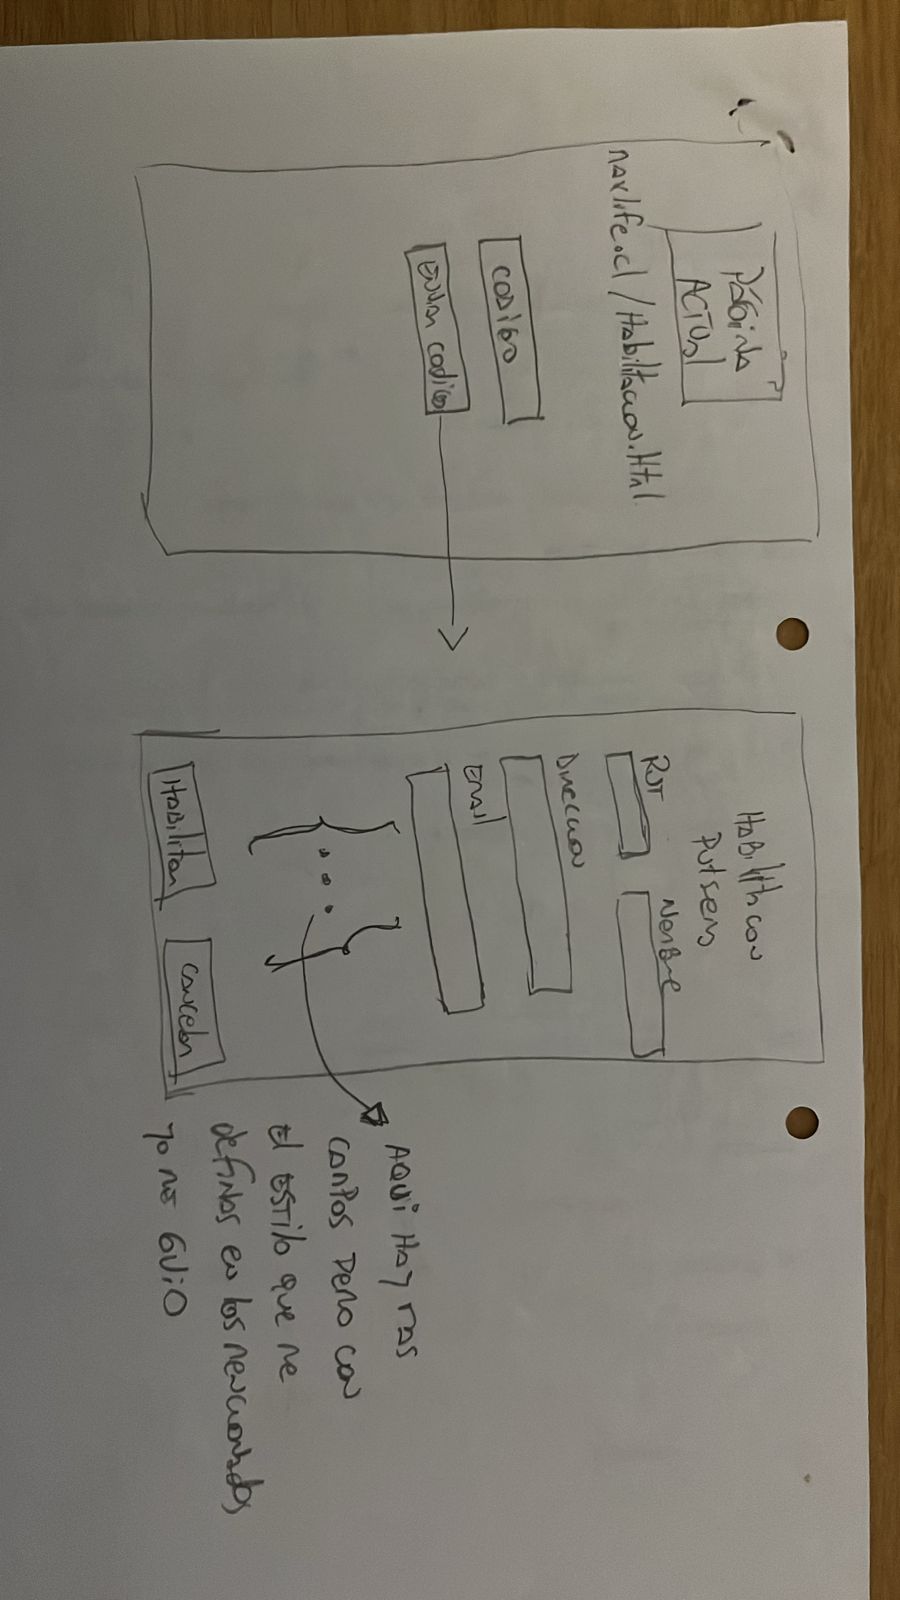 Página
Actual
navlife.cl/Habilitacion.Html
Codigo
Enviar codigo
Habilitacion
Pulsera
RUT
Nombre
Direccion
Email
...
Habilitar
Cancelar
AQUI HAY MAS
CAMPOS PERO CON
El ESTILO que me
definas en los mencionados
yo me GUIO